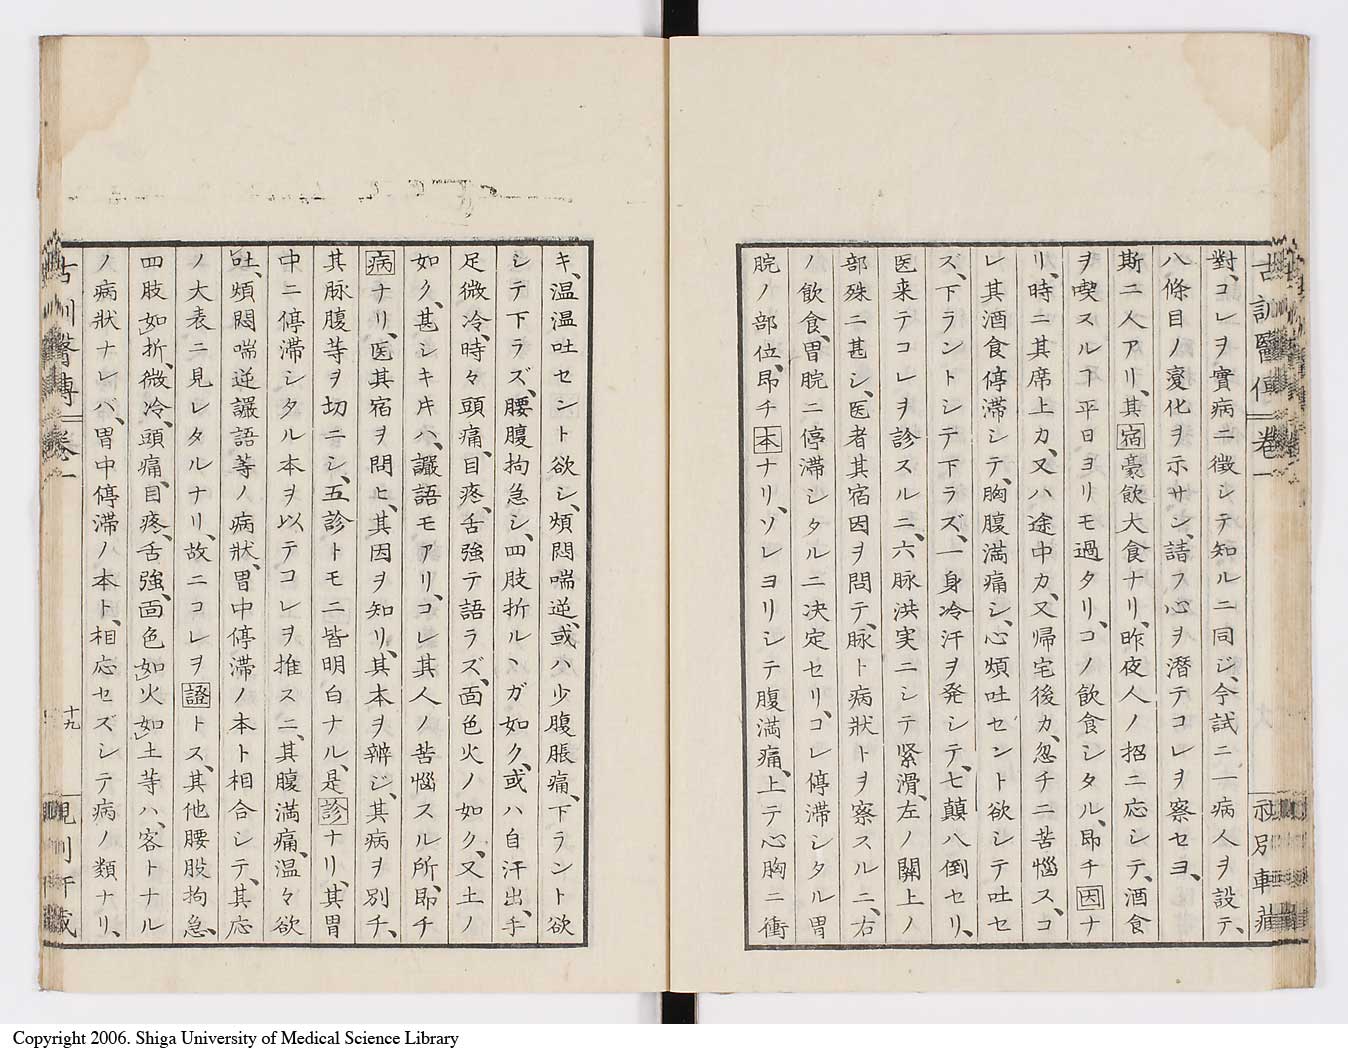 古訓醫傳 卷一
對、コレヲ實病ニ徴シテ知ルニ同ジ、今試ニ一病人ヲ設テ、
八條目ノ變化ヲ示サン、請フ心ヲ潛テコレヲ察セヨ、
斯ニ人アリ、其宿豪飲大食ナリ、昨夜人ノ招ニ応シテ、酒食
ヲ喫スルヿ平日ヨリモ過タリ、コノ飲食シタル、即チ因ナ
リ、時ニ其席上カ、又ハ途中カ、又帰宅後カ、忽チニ苦惱ス、コ
レ其酒食停滞シテ、胸腹満痛シ、心煩吐セント欲シテ吐セ
ズ、下ラントシテ下ラズ、一身冷汗ヲ発シテ、七顛八倒セリ、
医来テコレヲ診スルニ、六脉洪実ニシテ緊滑、左ノ関上ノ
部殊ニ甚シ、医者其宿因ヲ問テ、脉ト病狀トヲ察スルニ、右
ノ飲食、胃脘ニ停滞シタルニ决定セリ、コレ停滞シタル胃
脘ノ部位、即チ本ナリ、ソレヨリシテ腹満痛、上テ心胸ニ衝
キ、温温吐セント欲シ、煩悶喘逆、或ハ少腹脹痛、下ラント欲
シテ下ラズ、腰腹拘急シ、四肢折ルヽガ如ク、或ハ自汗出、手
足微冷、時々頭痛、目疼、舌強テ語ラズ、面色火ノ如ク、又土ノ
如ク、甚シキ𪜈ハ、讝語モアリ、コレ其人ノ苦惱スル所、即チ
病ナリ、医其宿ヲ問ヒ、其因ヲ知リ、其本ヲ辨ジ、其病ヲ別チ、
其脉腹等ヲ切ニシ、五診トモニ皆明白ナル、是診ナリ、其胃
中ニ停滞シタル本ヲ以テコレヲ推スニ、其腹満痛、温々欲
吐、煩悶喘逆讝語等ノ病狀、胃中停滞ノ本ト相合シテ、其応
ノ大表ニ見レタルナリ、故ニコレヲ證トス、其他腰股拘急、
四肢如折、微冷、頭痛、目疼、舌強、面色如火如土等ハ、客トナル
ノ病狀ナレバ、胃中停滞ノ本ト、相応セズシテ病ノ類ナリ、
古訓醫傳 卷一
十九
Copyright 2006. Shiga University of Medical Science Library